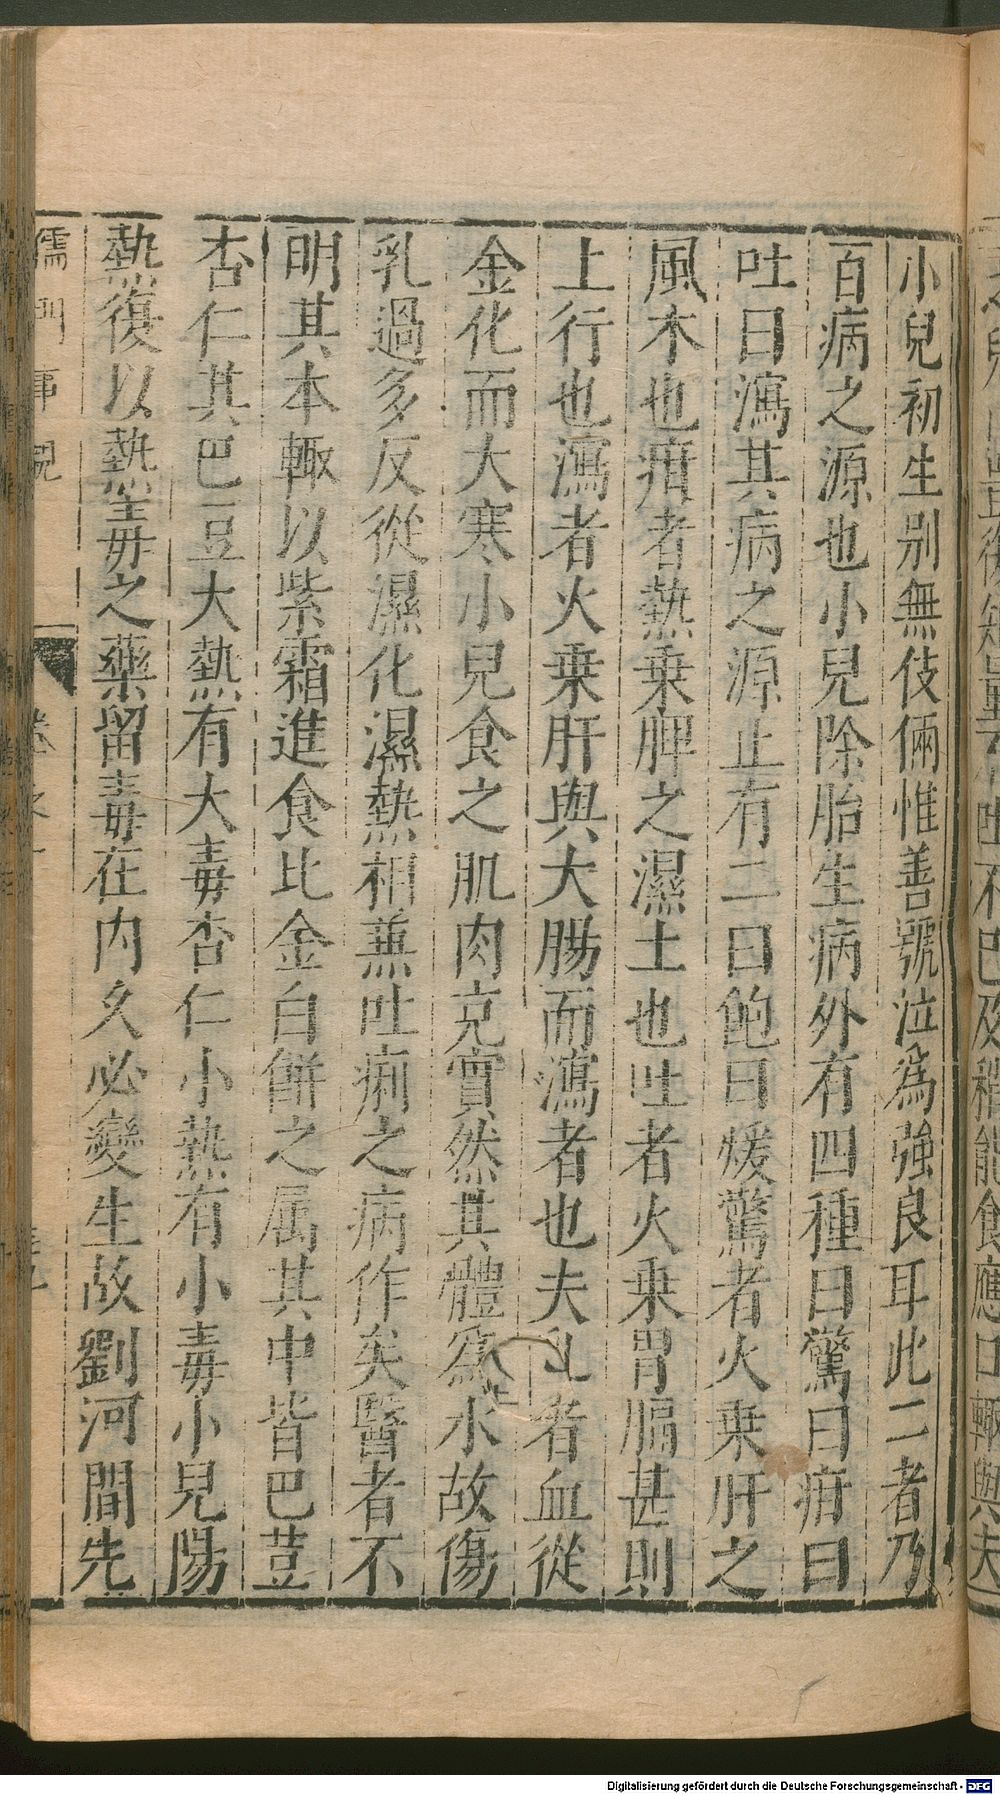 小兒初生別無伎倆惟善號泣爲強良耳此二者乃
百病之源也小兒除胎生病外有四種曰驚曰疳曰
吐曰瀉其病之源止有二曰飽曰煖驚者火乗肝之
風木也疳者熱乗脾之濕土也吐者火乗胃膈甚則
上行也瀉者火乗肝與大腸而瀉者也夫乳者血從
金化而大寒小兒食之肌肉充實然其體爲水故傷
乳過多反從濕化濕熱相兼吐痢之病作矣醫者不
明其本輙以紫霜進食比金白餅之属其中皆巴荳
杏仁其巴豆大熱有大毒杏仁小熱有小毒小兒陽
熱復以熱毒之藥留毒在内久必變生故劉河間先
儒門事親
卷之一
Digitalisierung gefördert durch die Deutsche Forschungsgemeinschaft - DFG